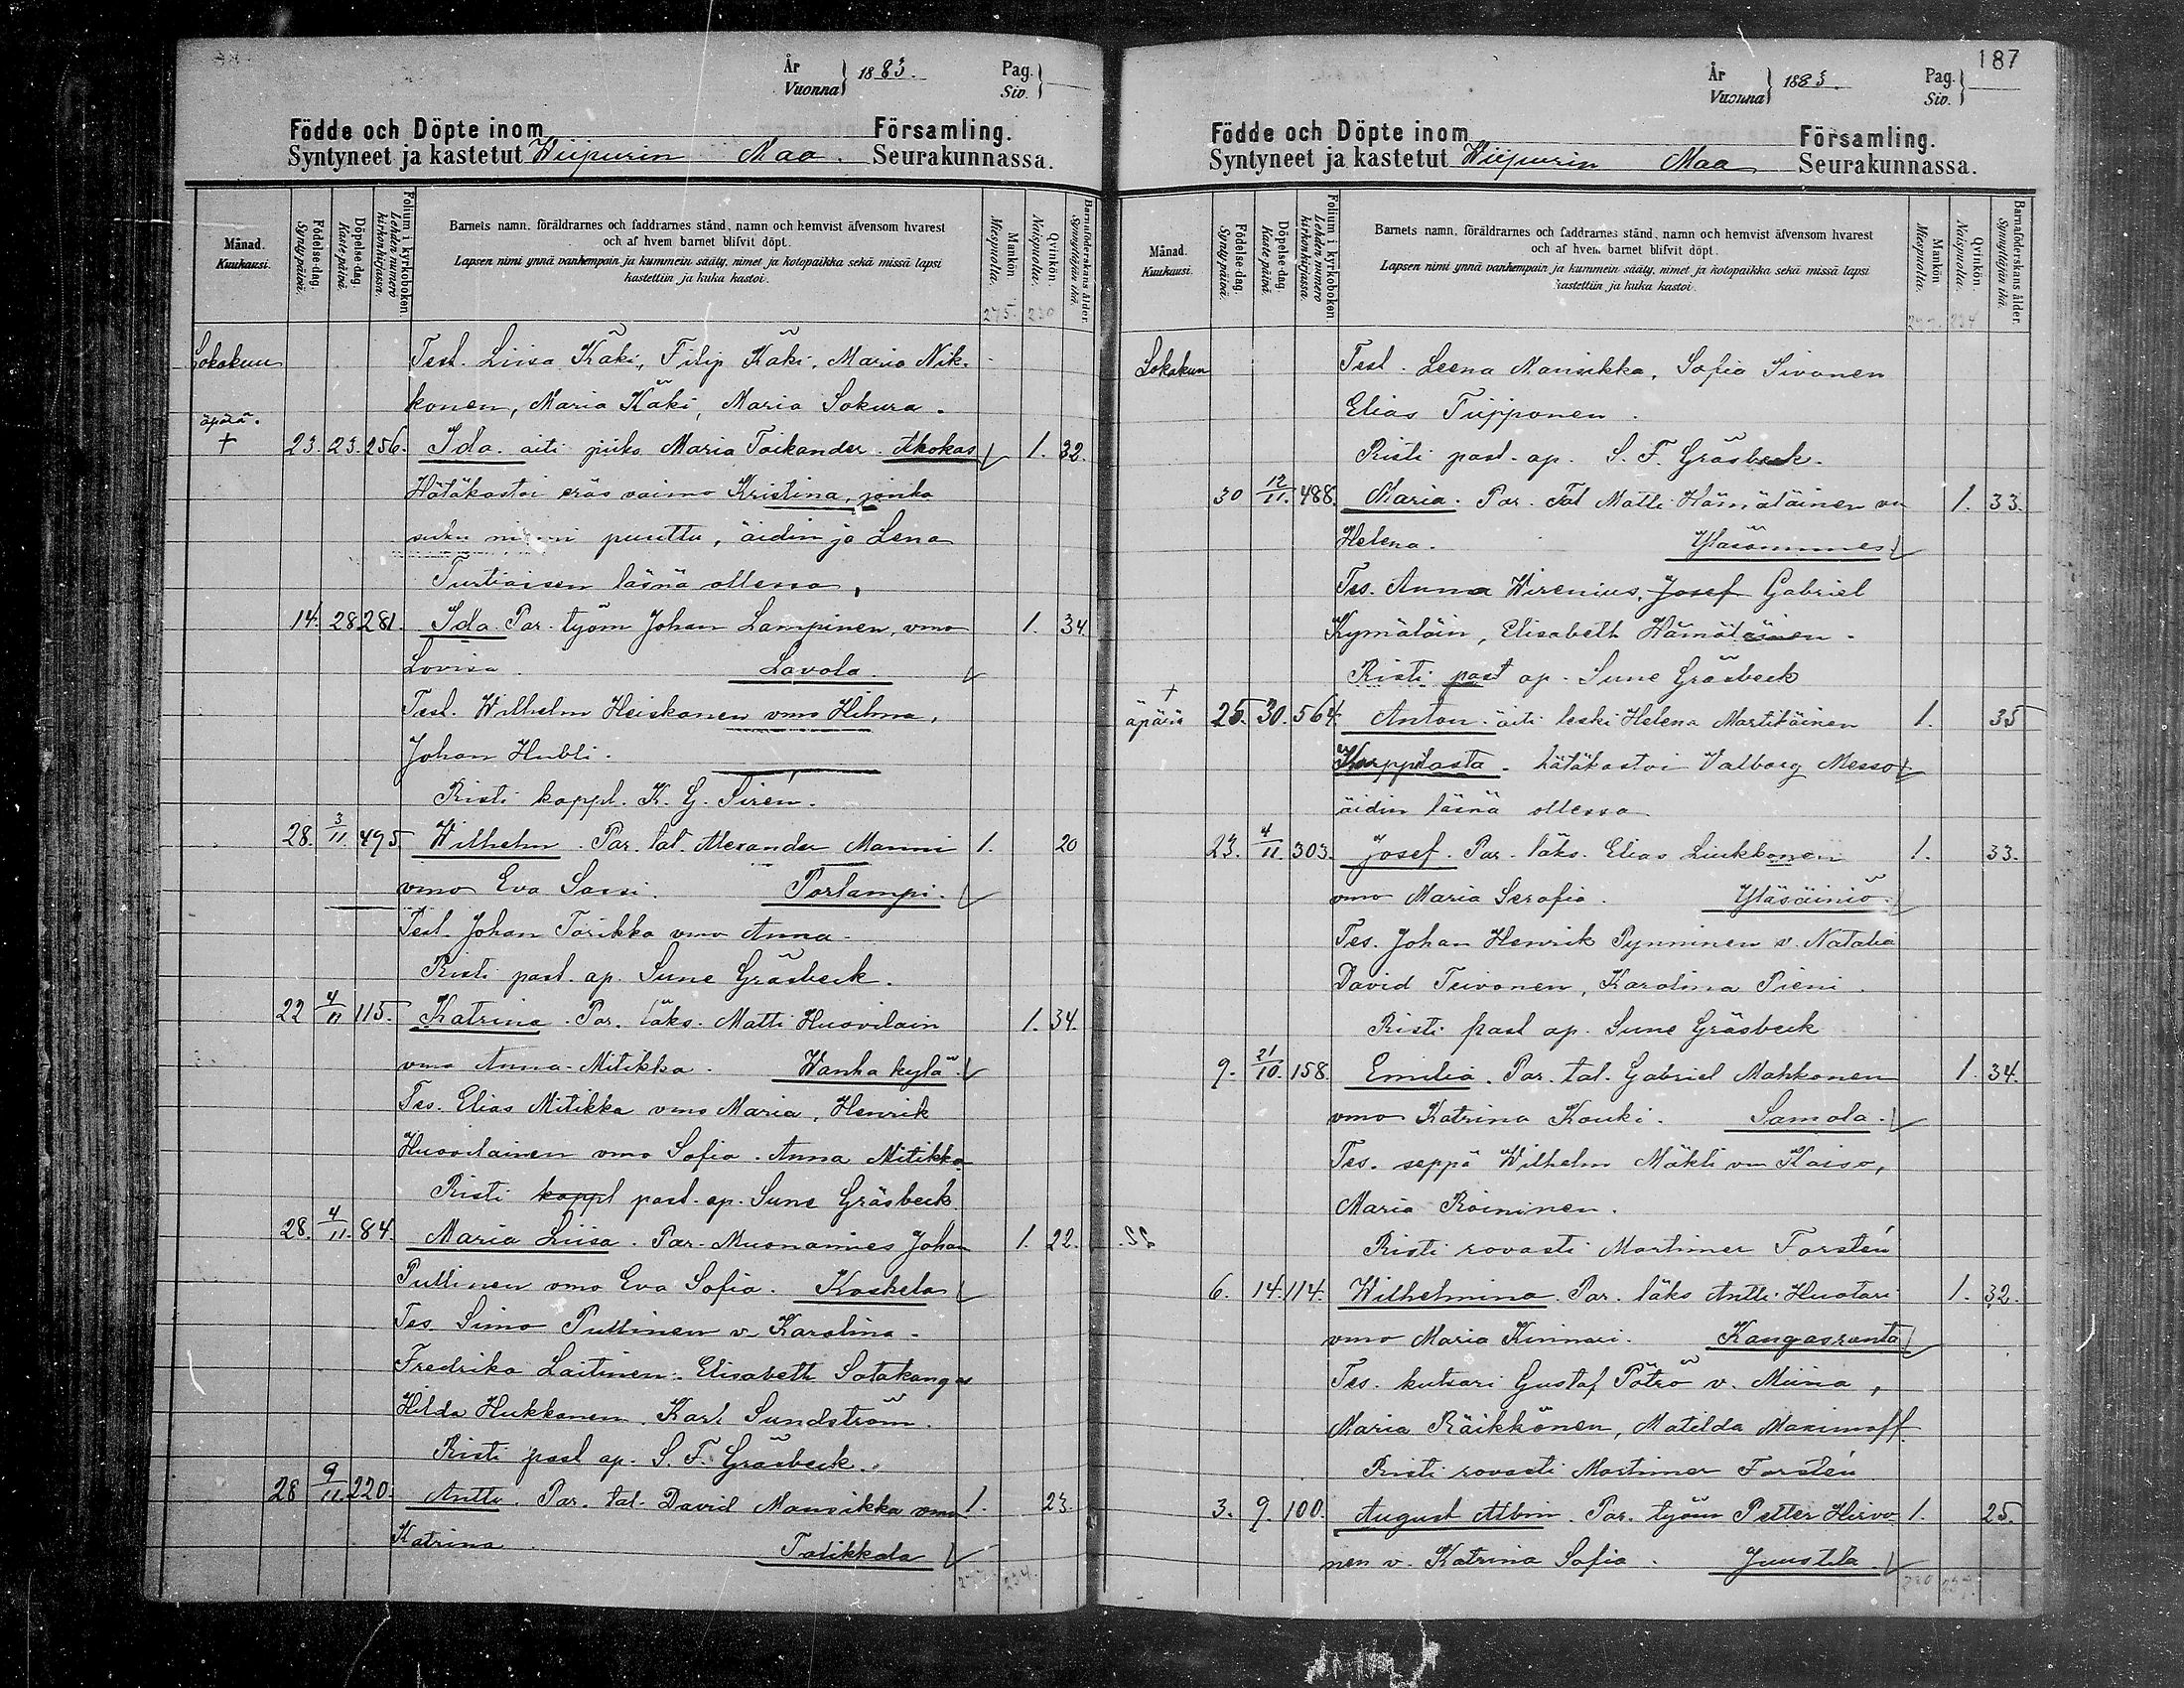 År
Vuonna } 1883.
Pag.
Siv. }
Födde och Döpte inom Församling.
Syntyneet ja kastetut Wiipurin Maa. Seurakunnassa.
Månad. Kuukausi.
Födelse-dag. Synty päivä.
Döpelse-dag. Kaste päivä.
Folium i kyrkoboken. Lehden numero kirkonkirjassa.
Barnets namn, föräldrarnes och faddrarnes stånd, namn och hemvist äfvensom hvarest
och af hvem barnet blifvit döpt.
Lapsen nimi ynnä vanhempain ja kummein sääty, nimet ja kotopaikka sekä missä lapsi
kastettiin ja kuka kastoi.
Mankön. Miespuolia.
Qvinkön. Naispuolia.
Barnaföderskans ålder. Synnyttäjän ikä.
275. 230
Lokakuu Test. Liisa Käki, Filip Käki, Maria Nik-
konen, Maria Käki, Maria Sokura.
äpärä.
† 23. 23. 256. Ida. äiti piika Maria Toikander. Akokas 1. 32.
Hätäkastoi eräs vaimo Kristina, jonka
suku nimi puuttu, äidin ja Lena
Turtiaisen läsnä ollessa,
14. 28 281. Ida. Par. työm Johan Lampinen, vmo 1. 34.
Lovisa. Lavola.
Test. Wilhelm Heiskanen vmo Hilma,
Johan Hubli.
Risti kappl. K. G. Sirén.
28. 3/11. 495. Wilhelm. Par. tal. Alexander Manni 1. 20
vmo Eva Sassi. Porlampi.
Test. Johan Torikka vmo Anna.
Risti past. ap. Sune Gräsbeck.
22 4/11 115. Katrina. Par. läks. Matti Huovilain 1. 34.
vmo Anna Mitikka. Wanha kylä.
Tes. Elias Mitikka vmo Maria, Henrik
Huovilainen vmo Sofia. Anna Mitikka
Risti kappl past. ap. Sune Gräsbeck.
28. 4/11. 84. Maria Liisa. Par. Muonamies Johan 1. 22.
Pullinen vmo Eva Sofia. Koskela
Tes. Simo Pullinen v. Karolina.
Fredrika Laitinen. Elisabeth Sotakangas
Hilda Hukkanen. Karl Sundström.
Risti past ap. S. F. Gräsbeck.
28 9/11. 220. Antti. Par. tal. David Mansikka vmo 1. 23.
Katrina. Talikkala
234.
187
År
Vuonna } 1883.
Pag.
Siv. }
Födde och Döpte inom Församling.
Syntyneet ja kastetut Wiipurin Maa Seurakunnassa.
Månad. Kuukausi.
Födelse-dag. Synty päivä.
Döpelse-dag. Kaste päivä.
Folium i kyrkoboken. Lehden numero kirkonkirjassa.
Barnets namn, föräldrarnes och faddrarnes stånd, namn och hemvist äfvensom hvarest
och af hvem barnet blifvit döpt.
Lapsen nimi ynnä vanhempain ja kummein sääty, nimet ja kotopaikka sekä missä lapsi
kastettiin ja kuka kastoi.
Mankön Miespuolia.
Qvinkön. Naispuolia.
Barnaföderskans ålder. Synnyttäjän ikä.
234
Lokakuu Test. Leena Mansikka, Sofia Sivonen
Elias Tiipponen.
Risti past. ap. S. F. Gräsbeck.
30 12/11. 488. Maria. Par. Tal Matti Hämäläinen vm 1. 33.
Helena. Yläsommes
Tes. Anna Wirenius, Josef Gabriel
Kymäläin, Elisabeth Hämäläinen.
Risti past ap. Sune Gräsbeck
†
äpärä 25. 30. 564. Anton. äiti leski Helena Martikäinen 1. 35
Karppilasta. hätäkastoi Valborg Messo
äidin läsnä ollessa
23. 4/11. 303. Josef. Par. läks. Elias Liukkonen 1. 33.
vmo Maria Serafia. Yläsäiniö.
Tes. Johan Henrik Pynninen v. Natalia
David Teivonen, Karolina Pieni.
Risti past ap. Sune Gräsbeck
9. 21/10. 158. Emilia. Par. tal. Gabriel Mahkonen 1. 34.
vmo Katrina Kouki. Samola.
Tes. seppä Wilhelm Mäkli vm Kaisa,
Maria Roininen.
Risti rovasti Mortimer Forstén
6. 14. 114. Wilhelmina. Par. läks Antti Huotari 1. 32.
vmo Maria Kinnari. Kangasranta
Tes. kutsari Gustaf Pötrö v. Miina,
Maria Räikkönen, Matilda Maximoff.
Risti rovasti Mortimer Forstén
3. 9. 100. August Albin. Par. työm Petter Hirvo 1. 25.
nen v. Katrina Sofia. Juustila.